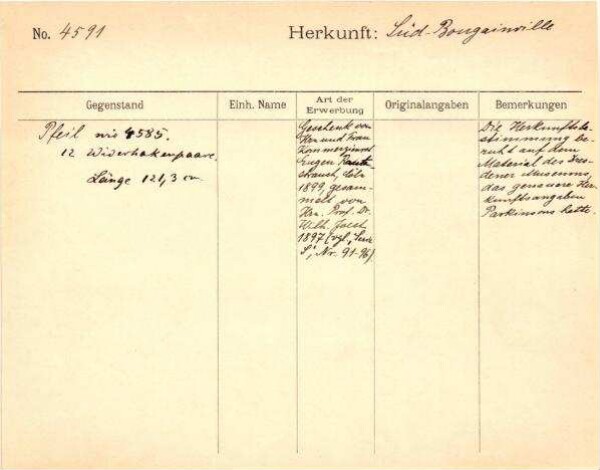 No. 4591
Herkunft: Süd-Bougainville
Gegenstand
Einh. Name
Art der Erwerbung
Originalangaben
Bemerkungen
Pfeil wie 4585.
12 Widerhakenpaare.
Länge 121,3 cm
Geschenk von
Herr und Frau
Kommerzienrat
Eugen Raute-
strauch, Cöln
1899, gesam-
melt von
Hrn. Prof. Dr.
Wilh. Joest
1897 (vgl.
Nr. 91-96)
Die Herkunftsbe-
stimmung be-
ruht auf dem
Material des Dres-
dener Museums,
das genauere Her-
kunftsangaben
Parkinsons hatte.